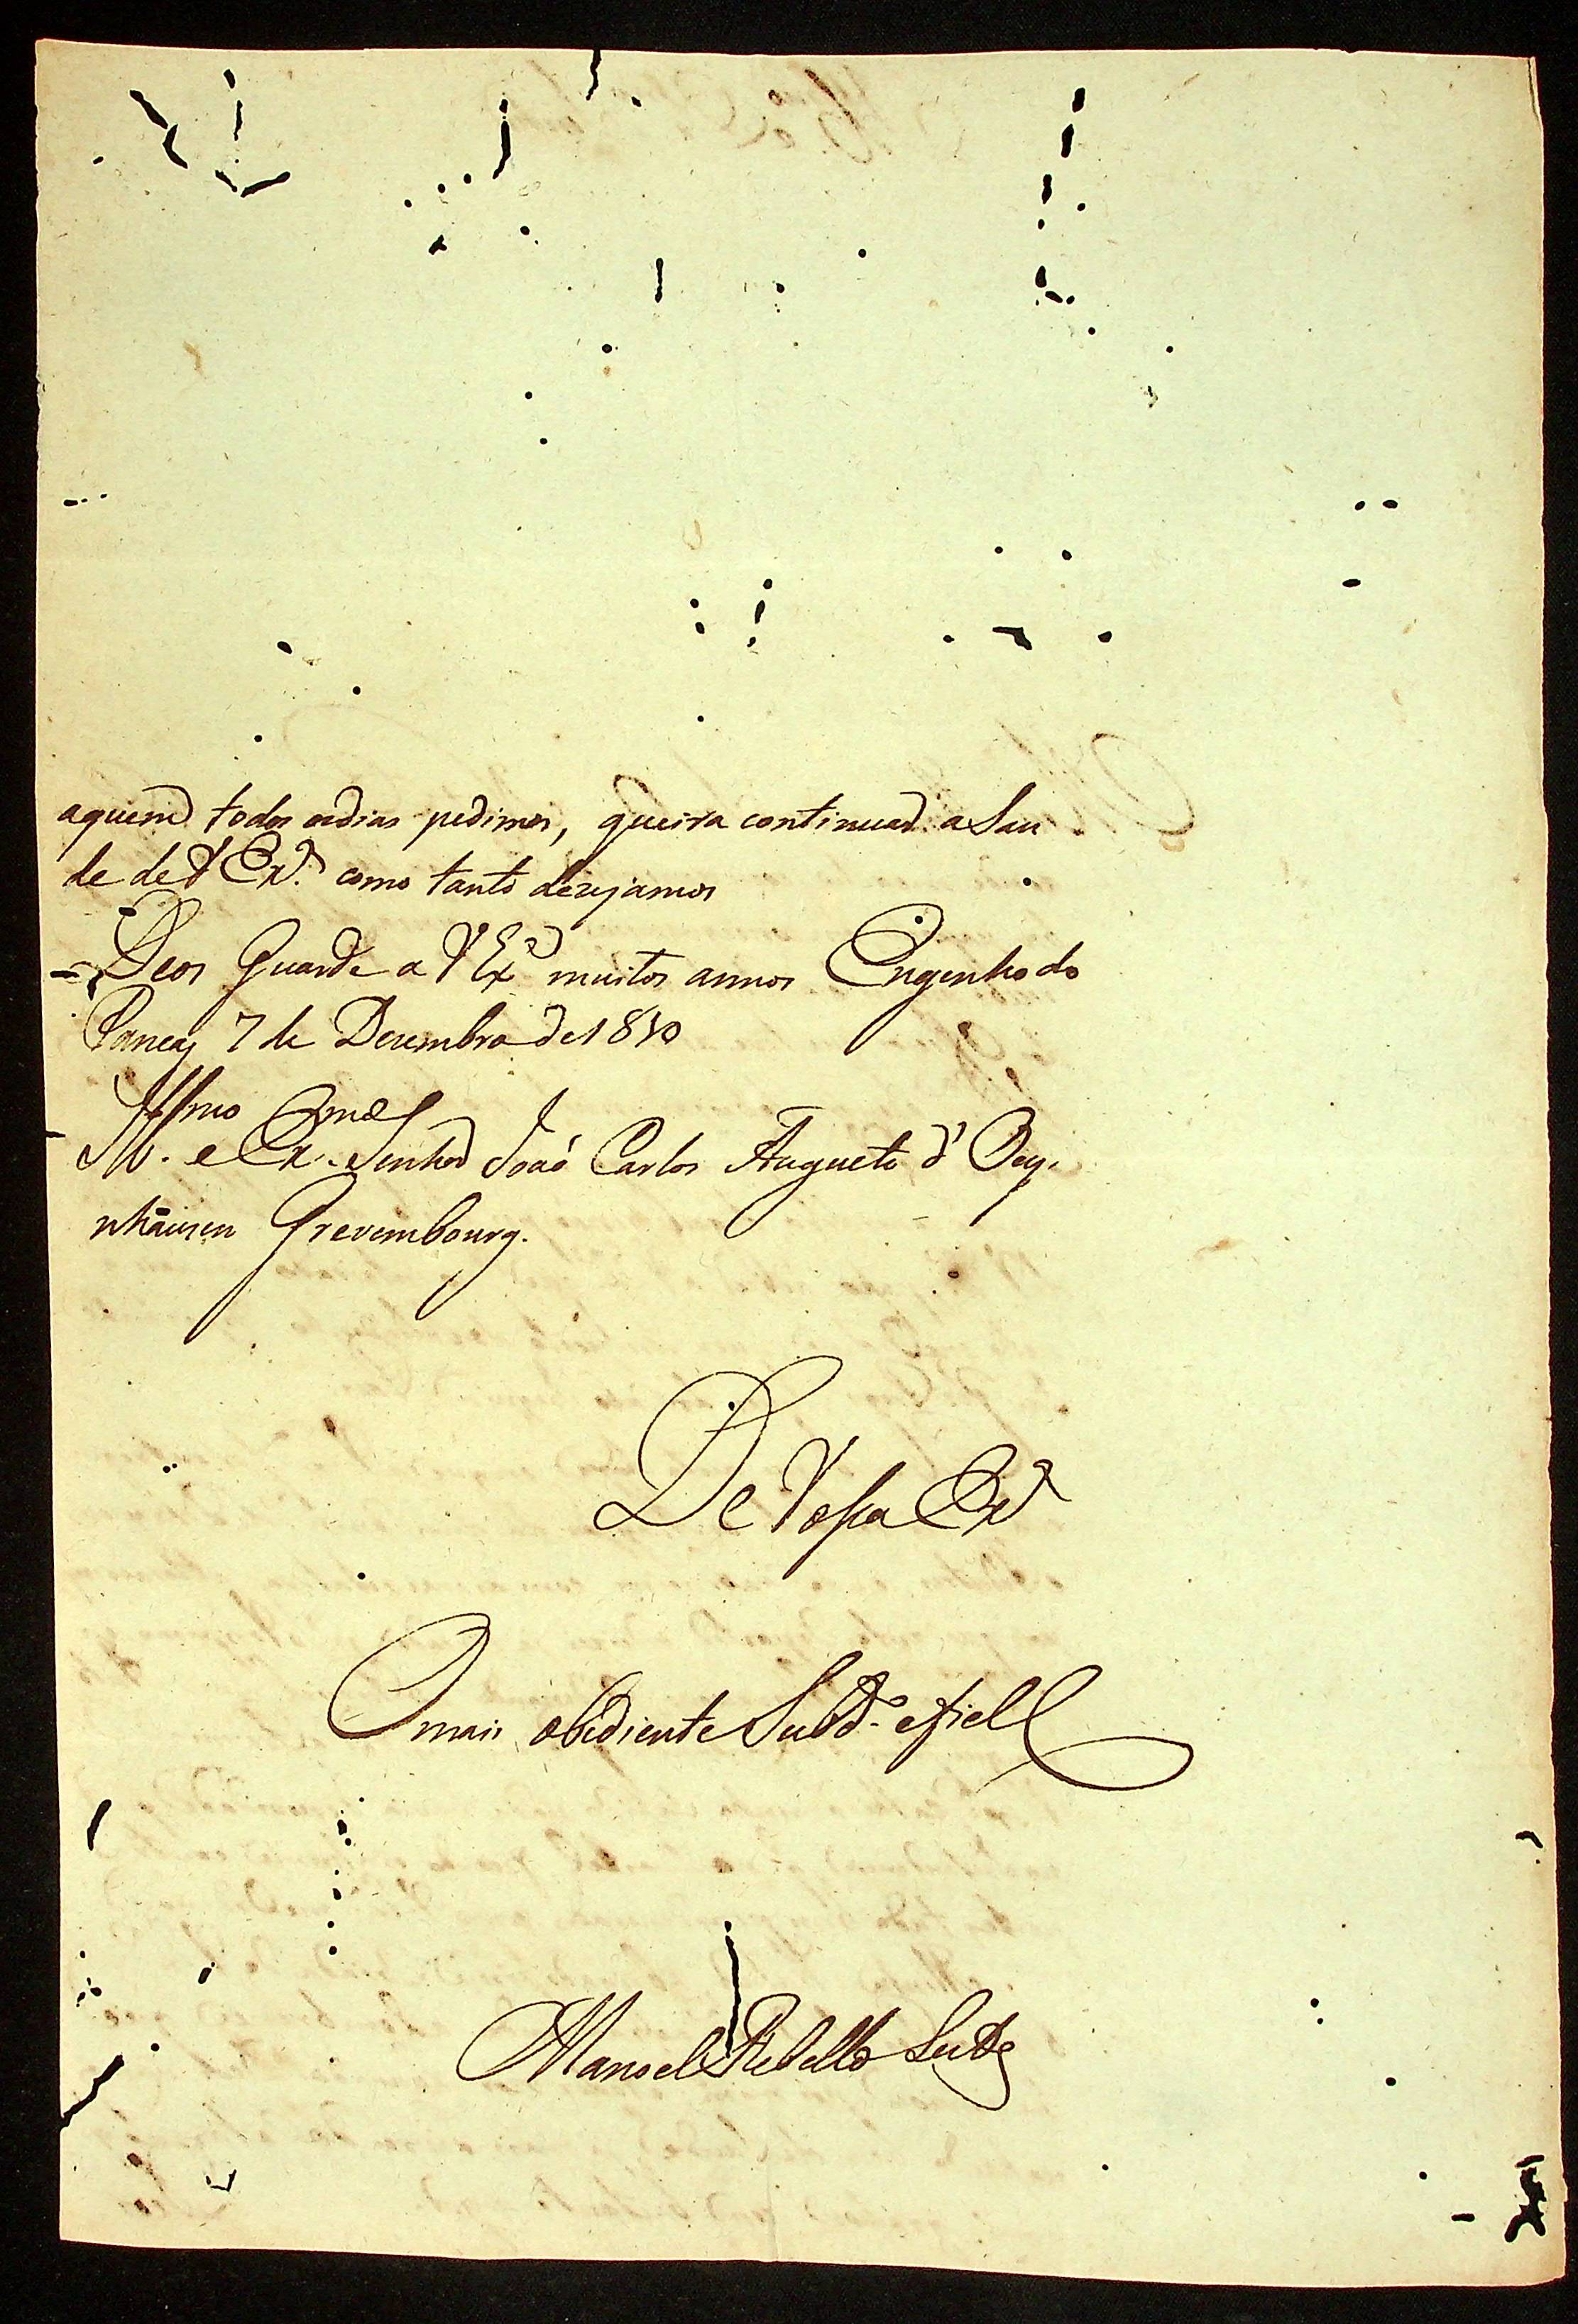 aquem todos osdias pedimos, queira continuad aSau
de deVEx.ª como tanto dezejamos
Deos Guarde a VExª muitos annos Engenho do
7 de Dezembro de1810
Illmo Exmo
e Senhor João Carlos Augusto d'Oey,
nhausen Grevembourg.
De Vossa Exª
Omais obediente Subdº efiel
Manoel Rebello